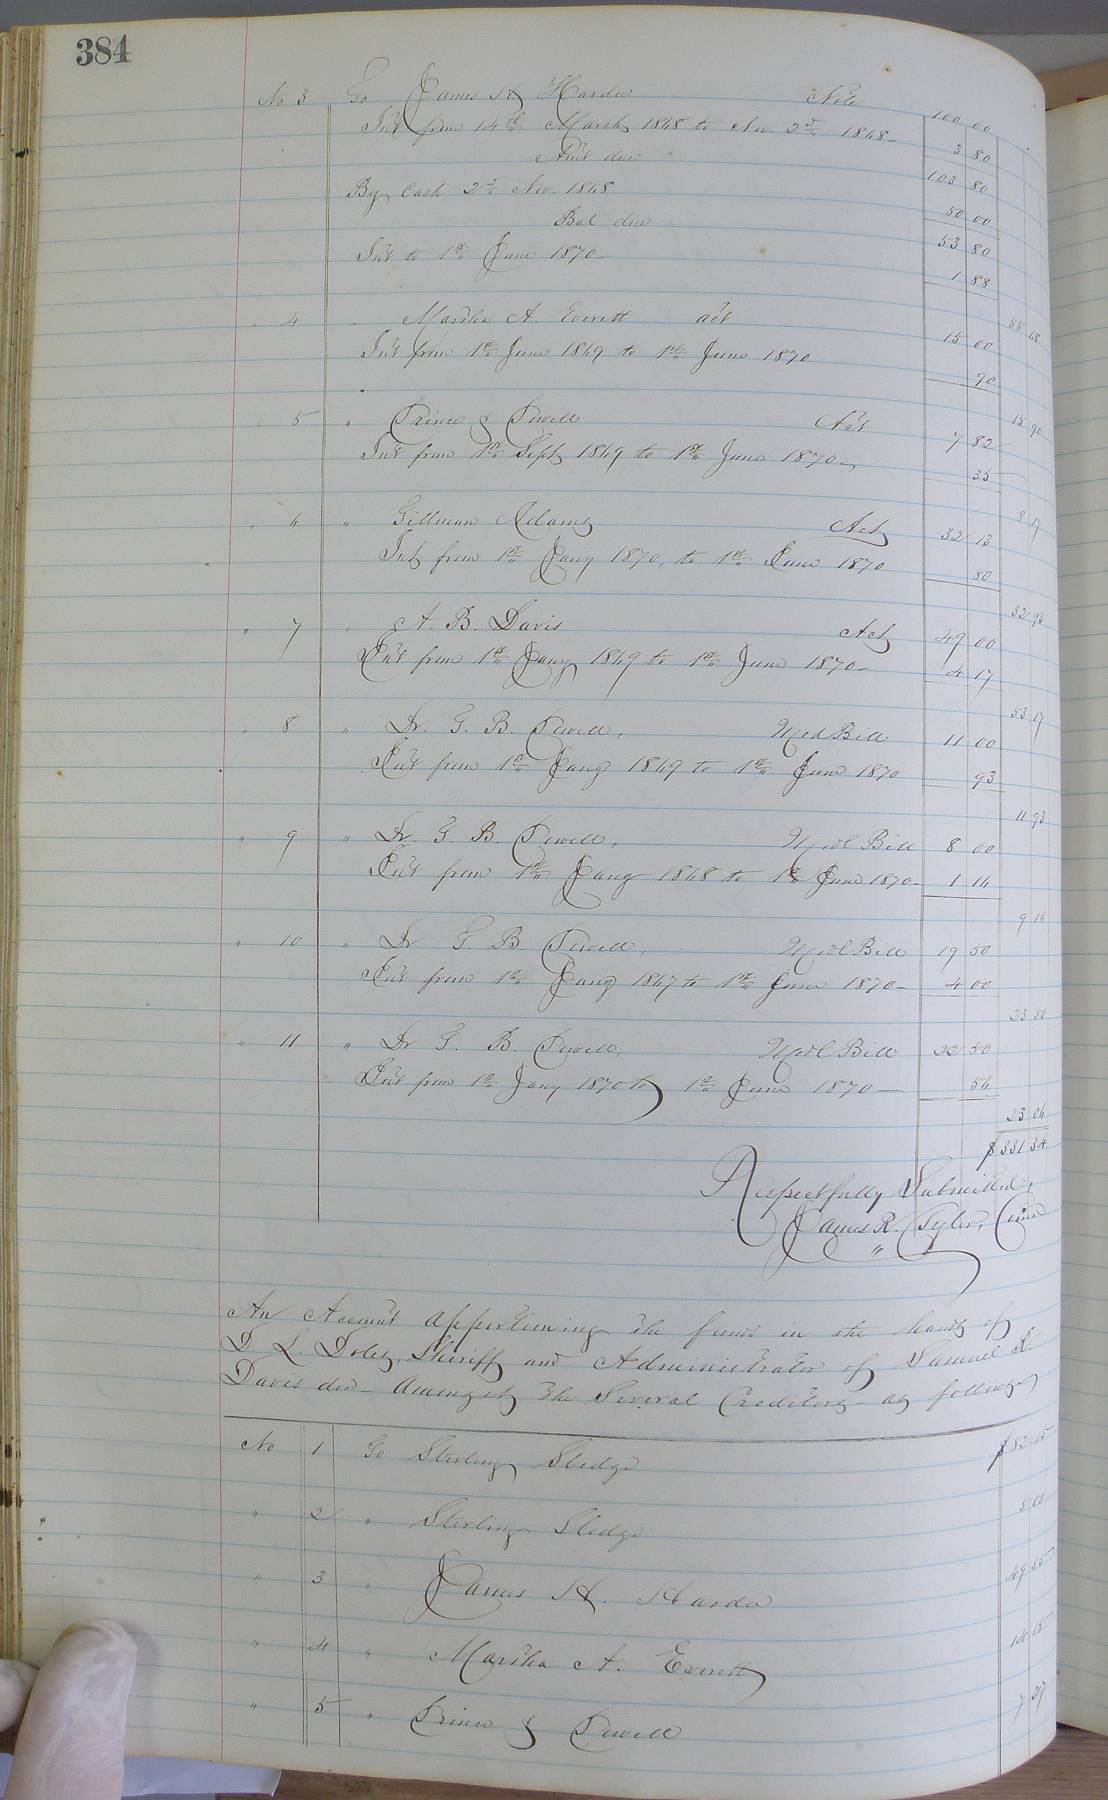 384
No 3 To James H Harder Note 100 00
Int from 14th March 1868 to Nov 2d 1868 3 80
Amt due 103 80
By Cash 2d Nov. 1868 50 00
Bal due 53 80
Int to 1st June 1870 1 88
55 68
" 4 " Martha A. Everett act 15 00
Int from 1st June 1869 to 1st June 1870 90
15 90
" 5 " Prince & Powell Act 7 82
Int from 1st Sept 1869 to 1st June 1870 35
8 17
" 6 " Gillman Adams Act 32 13
Int from 1st Jany 1870, to 1st June 1870 80
32 93
" 7 " A. B. Davis Act 49 00
Int from 1st Jany 1869 to 1st June 1870 4 17
53 17
" 8 " Dr. G. B. Powell, Med Bill 11 00
Int from 1st Jany 1869 to 1st June 1870 93
11 93
" 9 " Dr. G. B. Powell, Med Bill 8 00
Int from 1st Jany 1868 to 1st June 1870 1 16
9 16
" 10 " Dr G B Powell, Med Bill 19 50
Int from 1st Jany 1867 to 1st June 1870 4 00
23 50
" 11 " Dr G. B. Powell, Med Bill 22 50
Int from 1st Jany 1870 to 1st June 1870 56
23 06
$331 34
Respectfully Submitted,
James R. Tyler,
An Account apportioning the funds in the hands of
D. L. Doles, Sheriff and Administrator of Samuel R
Davis dec Amongst the Several Creditors as follows
No 1 To Sterling Sledge $82 05
" 2 " Sterling Sledge 5 00
" 3 " James H. Harder 49 55
" 4 " Martha A. Everett 14 15
" 5 " Prince & Powell 7 27